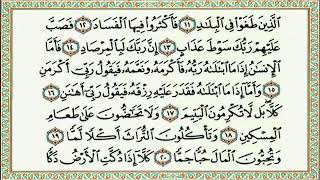 ٱلَّذِينَ طَغَوۡاْ فِي ٱلۡبِلَٰدِ ١١ فَأَكۡثَرُواْ فِيهَا ٱلۡفَسَادَ ١٢ فَصَبَّ
عَلَيۡهِمۡ رَبُّكَ سَوۡطَ عَذَابٍ ١٣ إِنَّ رَبَّكَ لَبِٱلۡمِرۡصَادِ ١٤ فَأَمَّا
ٱلۡإِنسَٰنُ إِذَا مَا ٱبۡتَلَىٰهُ رَبُّهُۥ فَأَكۡرَمَهُۥ وَنَعَّمَهُۥ فَيَقُولُ رَبِّيٓ أَكۡرَمَنِ
١٥ وَأَمَّآ إِذَا مَا ٱبۡتَلَىٰهُ فَقَدَرَ عَلَيۡهِ رِزۡقَهُۥ فَيَقُولُ رَبِّيٓ أَهَٰنَنِ ١٦
كَلَّاۖ بَل لَّا تُكۡرِمُونَ ٱلۡيَتِيمَ ١٧ وَلَا تَحَٰٓضُّونَ عَلَىٰ طَعَامِ
ٱلۡمِسۡكِينِ ١٨ وَتَأۡكُلُونَ ٱلتُّرَاثَ أَكۡلٗا لَّمّٗا ١٩
وَتُحِبُّونَ ٱلۡمَالَ حُبّٗا جَمّٗا ٢٠ كَلَّآۖ إِذَا دُكَّتِ ٱلۡأَرۡضُ دَكّٗا